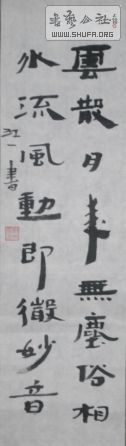 書藝公社
WWW.SHUFA.ORG
雲散月來無塵俗相
水流風動即微妙音